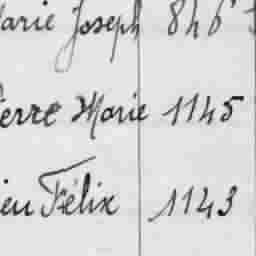 arie Joseph 846
erre Marie 1145
ieu Félix 1143